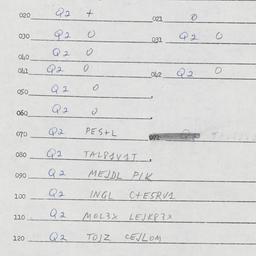 020 Q2 + 021 0
030 Q2 0 031 Q2 0
040 Q2 0
041 Q2 0 042 Q2 0
050 Q2 0
060 Q2 0
070 Q2 PES+L 072
080 Q2
090 Q2 MEJDL PIK
100 Q2 INGL C+ESRV1
110 Q2 MOL3X LEJKP3X
120 Q2 TOJZ CEJLOM